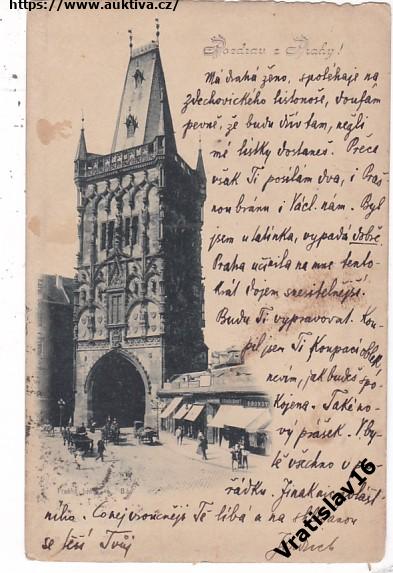 https://www.auktiva.cz/
Pozdrav z Prahy!
Má drahá ženo, spoléhaje na
Zdechovického listonoše, doufám
pevně, že budu dřív tam, nežli
mé lístky dostaneš. Přece
však Ti posílám dva, i Praš-
nou bránu i Václ. nám. Byl
jsem u tatínka, vypadá dobře.
Praha učinila na mne tento-
krát dojem snesitelnější.
Budu Ti vypravovat. Kou-
pil jsem Ti koupací oblek
nevím, jak budeš spo-
kojena. Také no-
vý prášek. V by-
tě všechno v po-
řádku. Jinak
Co nejvroucněji Tě líbá a na
se těší Tvůj
Vratislav16